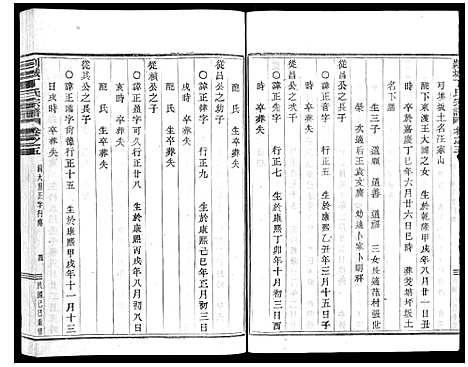 可坪坂之汪家山
配下東渡王大國之女 生於乾隆甲戌年八月廿一日丑
時卒於嘉慶丁巳年六月廿六日巳時 葬芝塘坪坂土
名下
生三子 道 道善 道 三女長適范村張世
榮 次適后王袁亥廣 幼適卜家卜明祥
從昌公之長子
○諱正康 行正七 生於康熙丁卯年十月初三日酉
時卒葬失
○諱正倫 行正八 生於康熙乙丑年三月十五日子
時卒葬失
○諱正音 字 行正九 生於康熙己巳年正月初三日
時卒葬失
配氏 生卒葬失
從楨公之長子
○諱正 字可久行正廿八 生於康熙丙戌年八月初八日
亥時 卒葬失
配氏 生卒葬失
從其公之子
○諱正 字前 行正十五 生於康熙甲戌年十一月十三
日戌時 卒葬失
剡 氏宗譜 卷之五
四
民國己巳重修